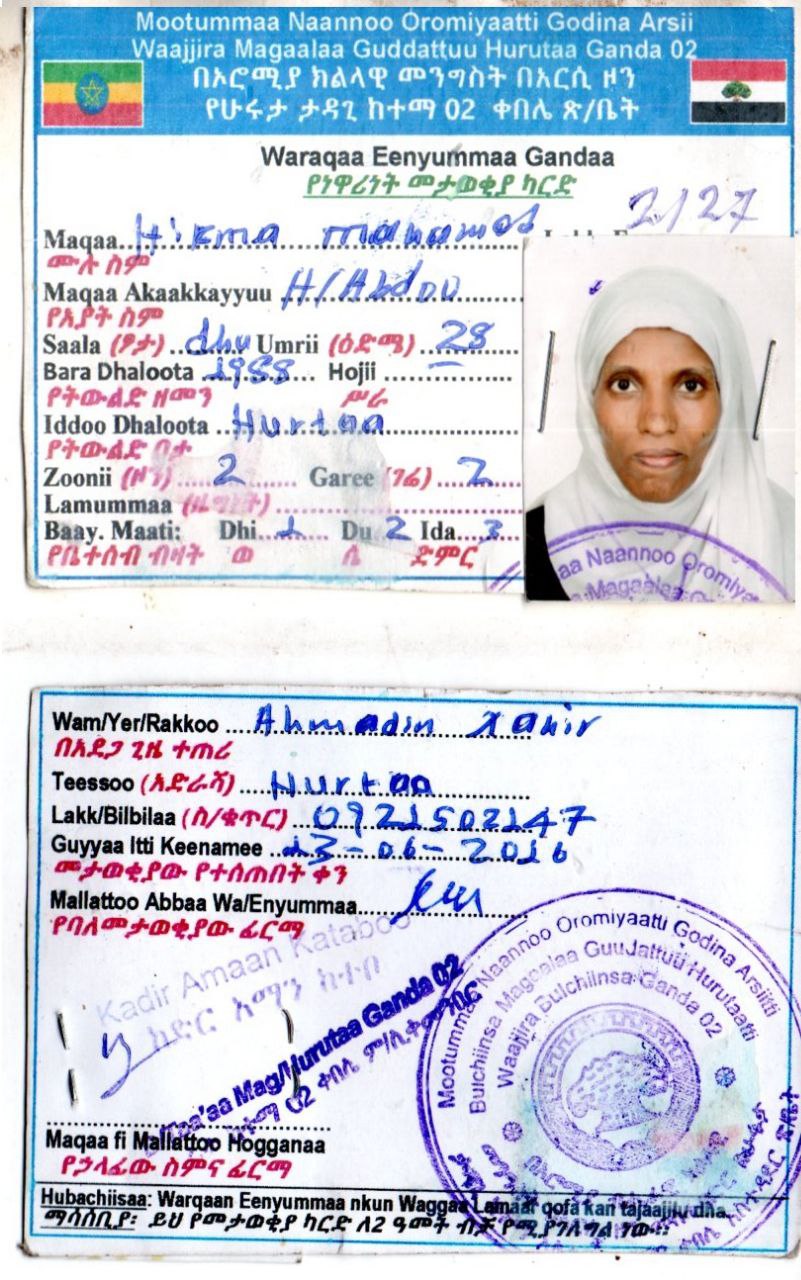 Mootummaa Naannoo Oromiyaatti Godina Arsii
Waajjira Magaalaa Guddattuu Hurutaa Ganda 02
በኦሮሚያ ክልላዊ መንግስት በአርሲ ዞን
የሁሩታ ታዳጊ ከተማ 02 ቀበሌ ጽ/ቤት
Waraqaa Eenyummaa Gandaa
የነዋሪነት መታወቂያ ካርድ
2127
Maqaa Hikma mahamed
ሙሉ ስም
Maqaa Akaakkayyuu H/Abdou
የአያት ስም
Saala (ፆታ) dhu Umrii (ዕድሜ) 28
Bara Dhaloota 1988 Hojii
የትውልድ ዘመን ሥራ
Iddoo Dhaloota Hurtaa
የትውልድ ቦታ
Zoonii (ዞን) 2 Garee (ጎሬ) 2
Lamummaa (ዜግነት)
Baay. Maati: Dhi 1 Du 2 Ida 3
የቤተሰብ ብዛት ወ ሴ ድምር
aa Naannoo Oromiya
Magaalaa
Wam/Yer/Rakkoo Ahmadin
በአደጋ ጊዜ ተጠሪ
Teessoo (አድራሻ) Hurtaa
Lakk/Bilbilaa (ስ/ቁጥር) 0921502147
Guyyaa Itti Keenamee 23-06-2016
መታወቂያው የተሰጠበት ቀን
Mallattoo Abbaa Wa/Enyummaa
የባለመታወቂያው ፊርማ
Kadir Amaan Kataboo
ከድር አማን ከተቦ
Mag/Hurutaa Ganda 02
ከተማ 02 ቀበሌ
Mootummaa Naannoo Oromiyaatti Godina Arsiitti
Bulchiinsa Magaalaa Guddattuu Hurutaatti
Waajjira Bulchiinsa Ganda 02
Maqaa fi Mallattoo Hogganaa
የኃላፊው ስምና ፊርማ
Hubachiisaa: Warqaan Eenyummaa nkun Waggaa Lamaaf qofa kan tajaajilu dha.
ማሳሰቢያ፡ ይህ የመታወቂያ ካርድ ለ2 ዓመት ብቻ የሚያገለግል ነው፡፡